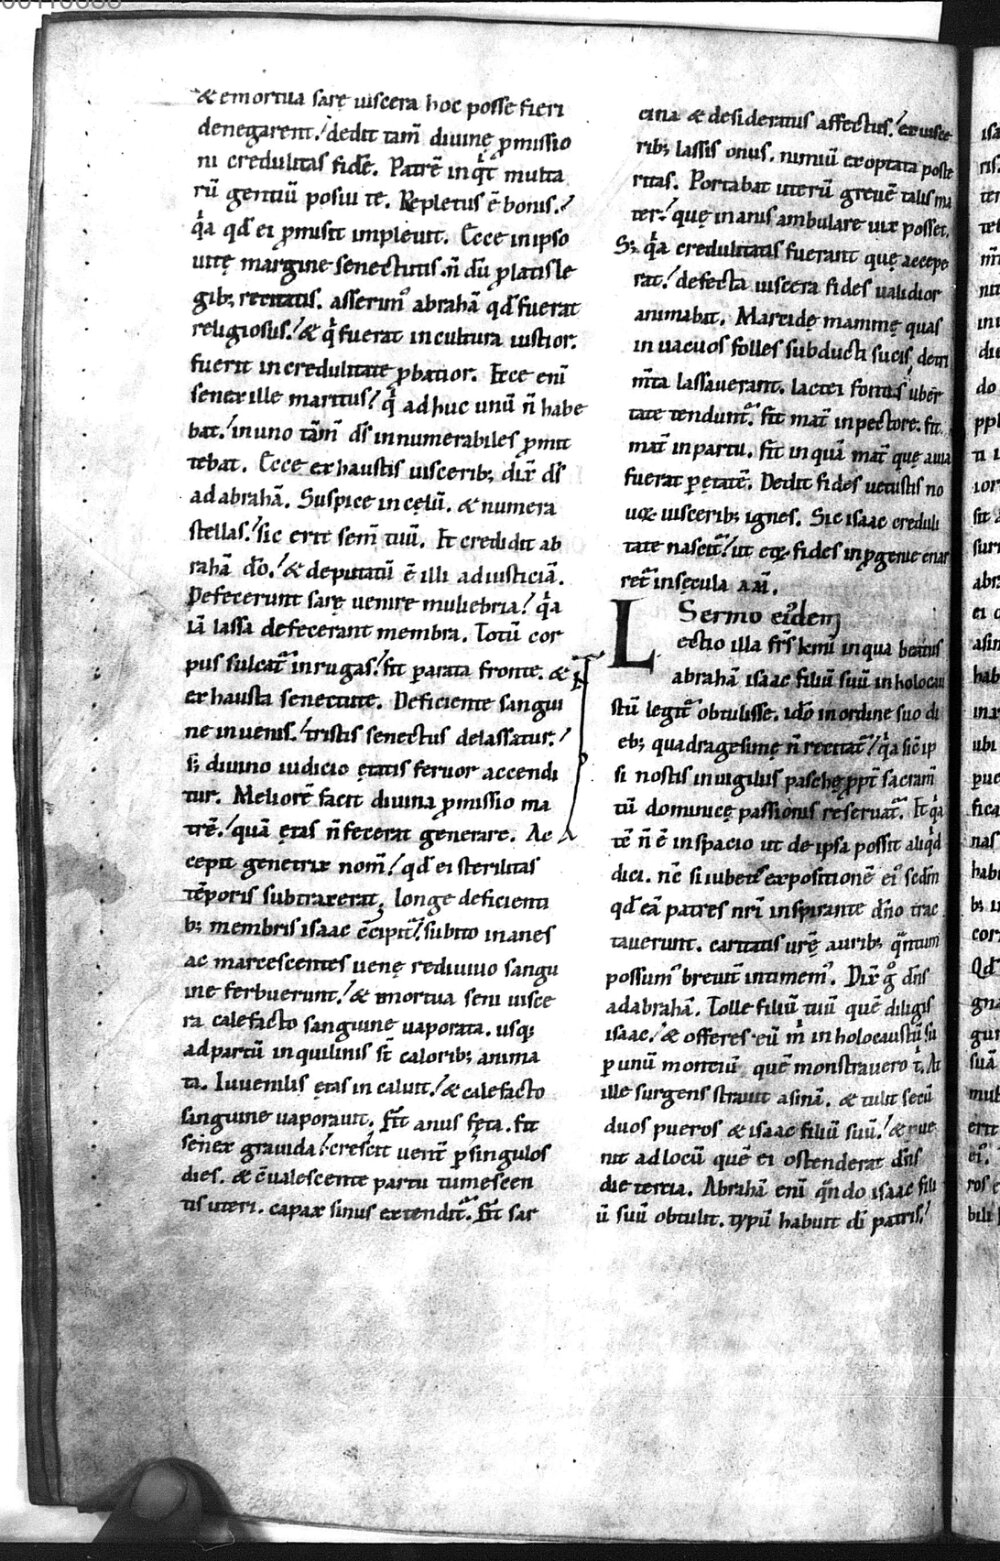 & emortua sarę uiscera hoc posse fieri
denegarent. dedit tam̄ diuinę ꝓmissio
ni credulitas fidē. Patrē inq̇t multa
rū gentiū posui te. Repletus ē bonis.
q̇a qđ ei ꝓmisit impleuit. Ecce in ipso
uitę margine senectutis. n̄ dū ꝓlatis le
gib; recitatis. asserim᷒ abrahā qđ fuerat
religiosus. & q̇ fuerat in cultura iustior.
fuerit in credulitate ꝓbatior. Ecce enī
senex ille maritus q̇ ad huc unū n̄ habe
bat. in uno tam̄ dꝰ innumerabiles ꝓmit
tebat. Ecce exhaustis uiscerib; dix̄ dꝰ
ad abrahā. Suspice in cęlū. & numera
stellas. sic erit sem̄ tuū. Et credidit ab
rahā dō. & deputatū ē illi ad iusticiā.
Defecerunt sarę uenire muliebria. q̇a
iā lassa defecerant membra. Totū cor
pus sulcat᷒ in rugas. fit parata fronte. &
exhausta senectute. Deficiente sangui
ne in uenis. tristis senectus delassatur.
s; diuino iudicio ętatis feruor accendi
tur. Meliorē facit diuina ꝓmissio ma
trē. quā ętas n̄ fecerat generare. Ac
cepit genetrix nom̄. qđ ei sterilitas
tēporis subtraxerat. longe deficienti
b; membris isaac c̄cipit᷒. subito inanes
ac marcescentes uenę rediuiuo sangu
ine ferbuerunt. & emortua seni uisce
ra calefacto sanguine uaporata. usq;
ad partū inquilinis sт̄ calorib; anima
ta. Iuuenilis ętas incaluit. & calefacto
sanguine uaporauit. Fit anus fęta. fit
senex grauida. crescit uent̄ ꝑ singulos
dies. & c̄ualescente partu tumescen
tis uteri. capax sinus extendit᷒. Fit sar
cina & desideratus affectus. ex uisce
rib; lassis onus. nimiū exoptata poste
ritas. Portabat uterū greuē talis ma
ter. quę in anis ambulare uix posset.
S; q̇a credulitatis fuerant quę accepe
rat. defecta uiscera fides ualidior
animabat. Marcidę mammę quas
in uacuos folles subducti sucis, detri
m̄ta lassauerant. lactei fontis uber
tate tendunt᷒. fit mat̄ in pectore. fit
mat̄ in partu. fit in quā mat̄ quę auia
fuerat ꝑ ętatē. Dedit fides uetustis no
uosq; uisceribꝫ ignes. Sic isaac creduli
tate nascit᷒. ut eęq; fides in ꝓgenie enar
ret᷒ in sęcula am̄.
Sermo eiꝰdem
Lectio illa fr̄s km̄i in qua beatus
abrahā isaac filiū suū in holocau
stū legit᷒ obtulisse. idō in ordine suo di
eb; quadragesimę n̄ recitat᷒. q̇a sic̄ ip
si nostis in uigiliis paschę ꝓpt̄ sacram̄
tū dominicę passionis reseruat᷒. Et q̇a
tē n̄ ē in spacio ut de ipsa possit aliq̇d
dici. nc̄ si iubetis expositionē eiꝰ scdm̄
qđ eā patres nr̄i inspirante dn̄o trac
tauerunt. caritatis ur̄ę aurib; q̄ntum
possum᷒ breuit̄ intimem᷒. Dix̄ g̊ dn̄s
ad abrahā. Tolle filiū tuū quē diligis
isaac. & offeres eū m̄ in holocaustū su
ꝑ unū montiū, quē monstrauero t̄. At
ille surgens strauit asinā. & tulit secū
duos pueros & isaac filiū suū. & eue
nit ad locū quē ei ostenderat dn̄s
die tertia. Abrahā enī q̄ndo isaac fili
ū suū obtulit. typū habuit dī patris.